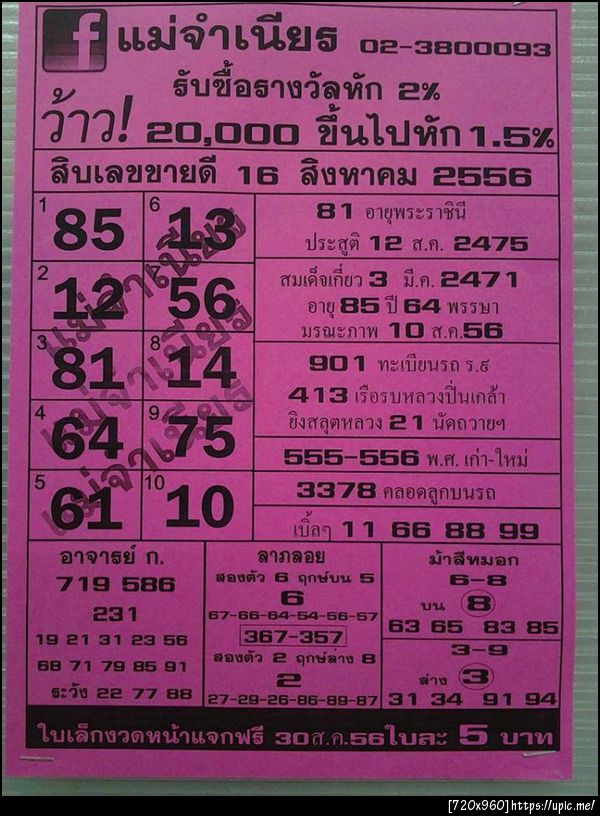 f แม่จำเนียร 02-3800093
รับซื้อรางวัลหัก 2%
ว้าว! 20,000 ขึ้นไปหัก 1.5%
สิบเลขขายดี 16 สิงหาคม 2556
1 85 6 13
2 12 56
3 81 8 14
4 64 9 75
5 61 10 10
แม่จำเนียร
แม่จำเนียร
แม่จำเนียร
81 อายุพระราชินี
ประสูติ 12 ส.ค. 2475
สมเด็จเกี่ยว 3 มี.ค. 2471
อายุ 85 ปี 64 พรรษา
มรณะภาพ 10 ส.ค.56
901 ทะเบียนรถ ร.๙
413 เรือรบหลวงปิ่นเกล้า
ยิงสลุตหลวง 21 นัดถวายฯ
555-556 พ.ศ. เก่า-ใหม่
3378 คลอดลูกบนรถ
เบิ้ลๆ 11 66 88 99
อาจารย์ ก.
719 586
231
19 21 31 23 56
68 71 79 85 91
ระวัง 22 77 88
ลาภลอย
สองตัว 6 ฤกษ์บน 5
6
67-66-64-54-56-57
367-357
สองตัว 2 ฤกษ์ล่าง 8
2
27-29-26-86-89-87
ม้าสีหมอก
6-8
บน 8
63 65 83 85
3-9
ล่าง 3
31 34 91 94
ใบเล็กงวดหน้าแจกฟรี 30ส.ค.56ใบละ 5 บาท
[720x960]https://upic.me/